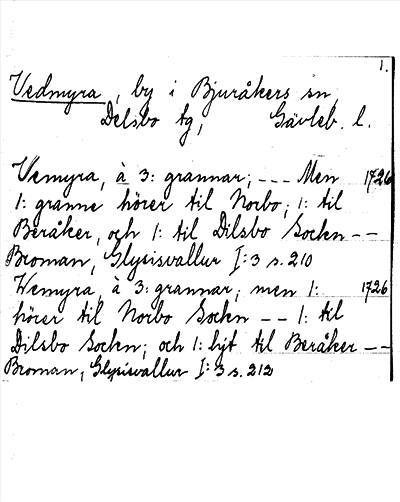 1.
Vedmyra, by i Bjuråkers sn,
Delsbo tg, Gävleb. l.
Wemyra, à 3: grannar; --- Men 1726
1: granne hörer til Norbo; 1: til
Beråker, och 1: til Dilsbo Sockn --
Broman, Glysisvallur I:3 s. 210
Wemyra, à 3: grannar; men 1: 1726
hörer til Norbo Sockn -- 1: til
Dilsbo Sockn; och 1: lyt til Beråker --
Broman, Glysisvallur I:3 s. 212